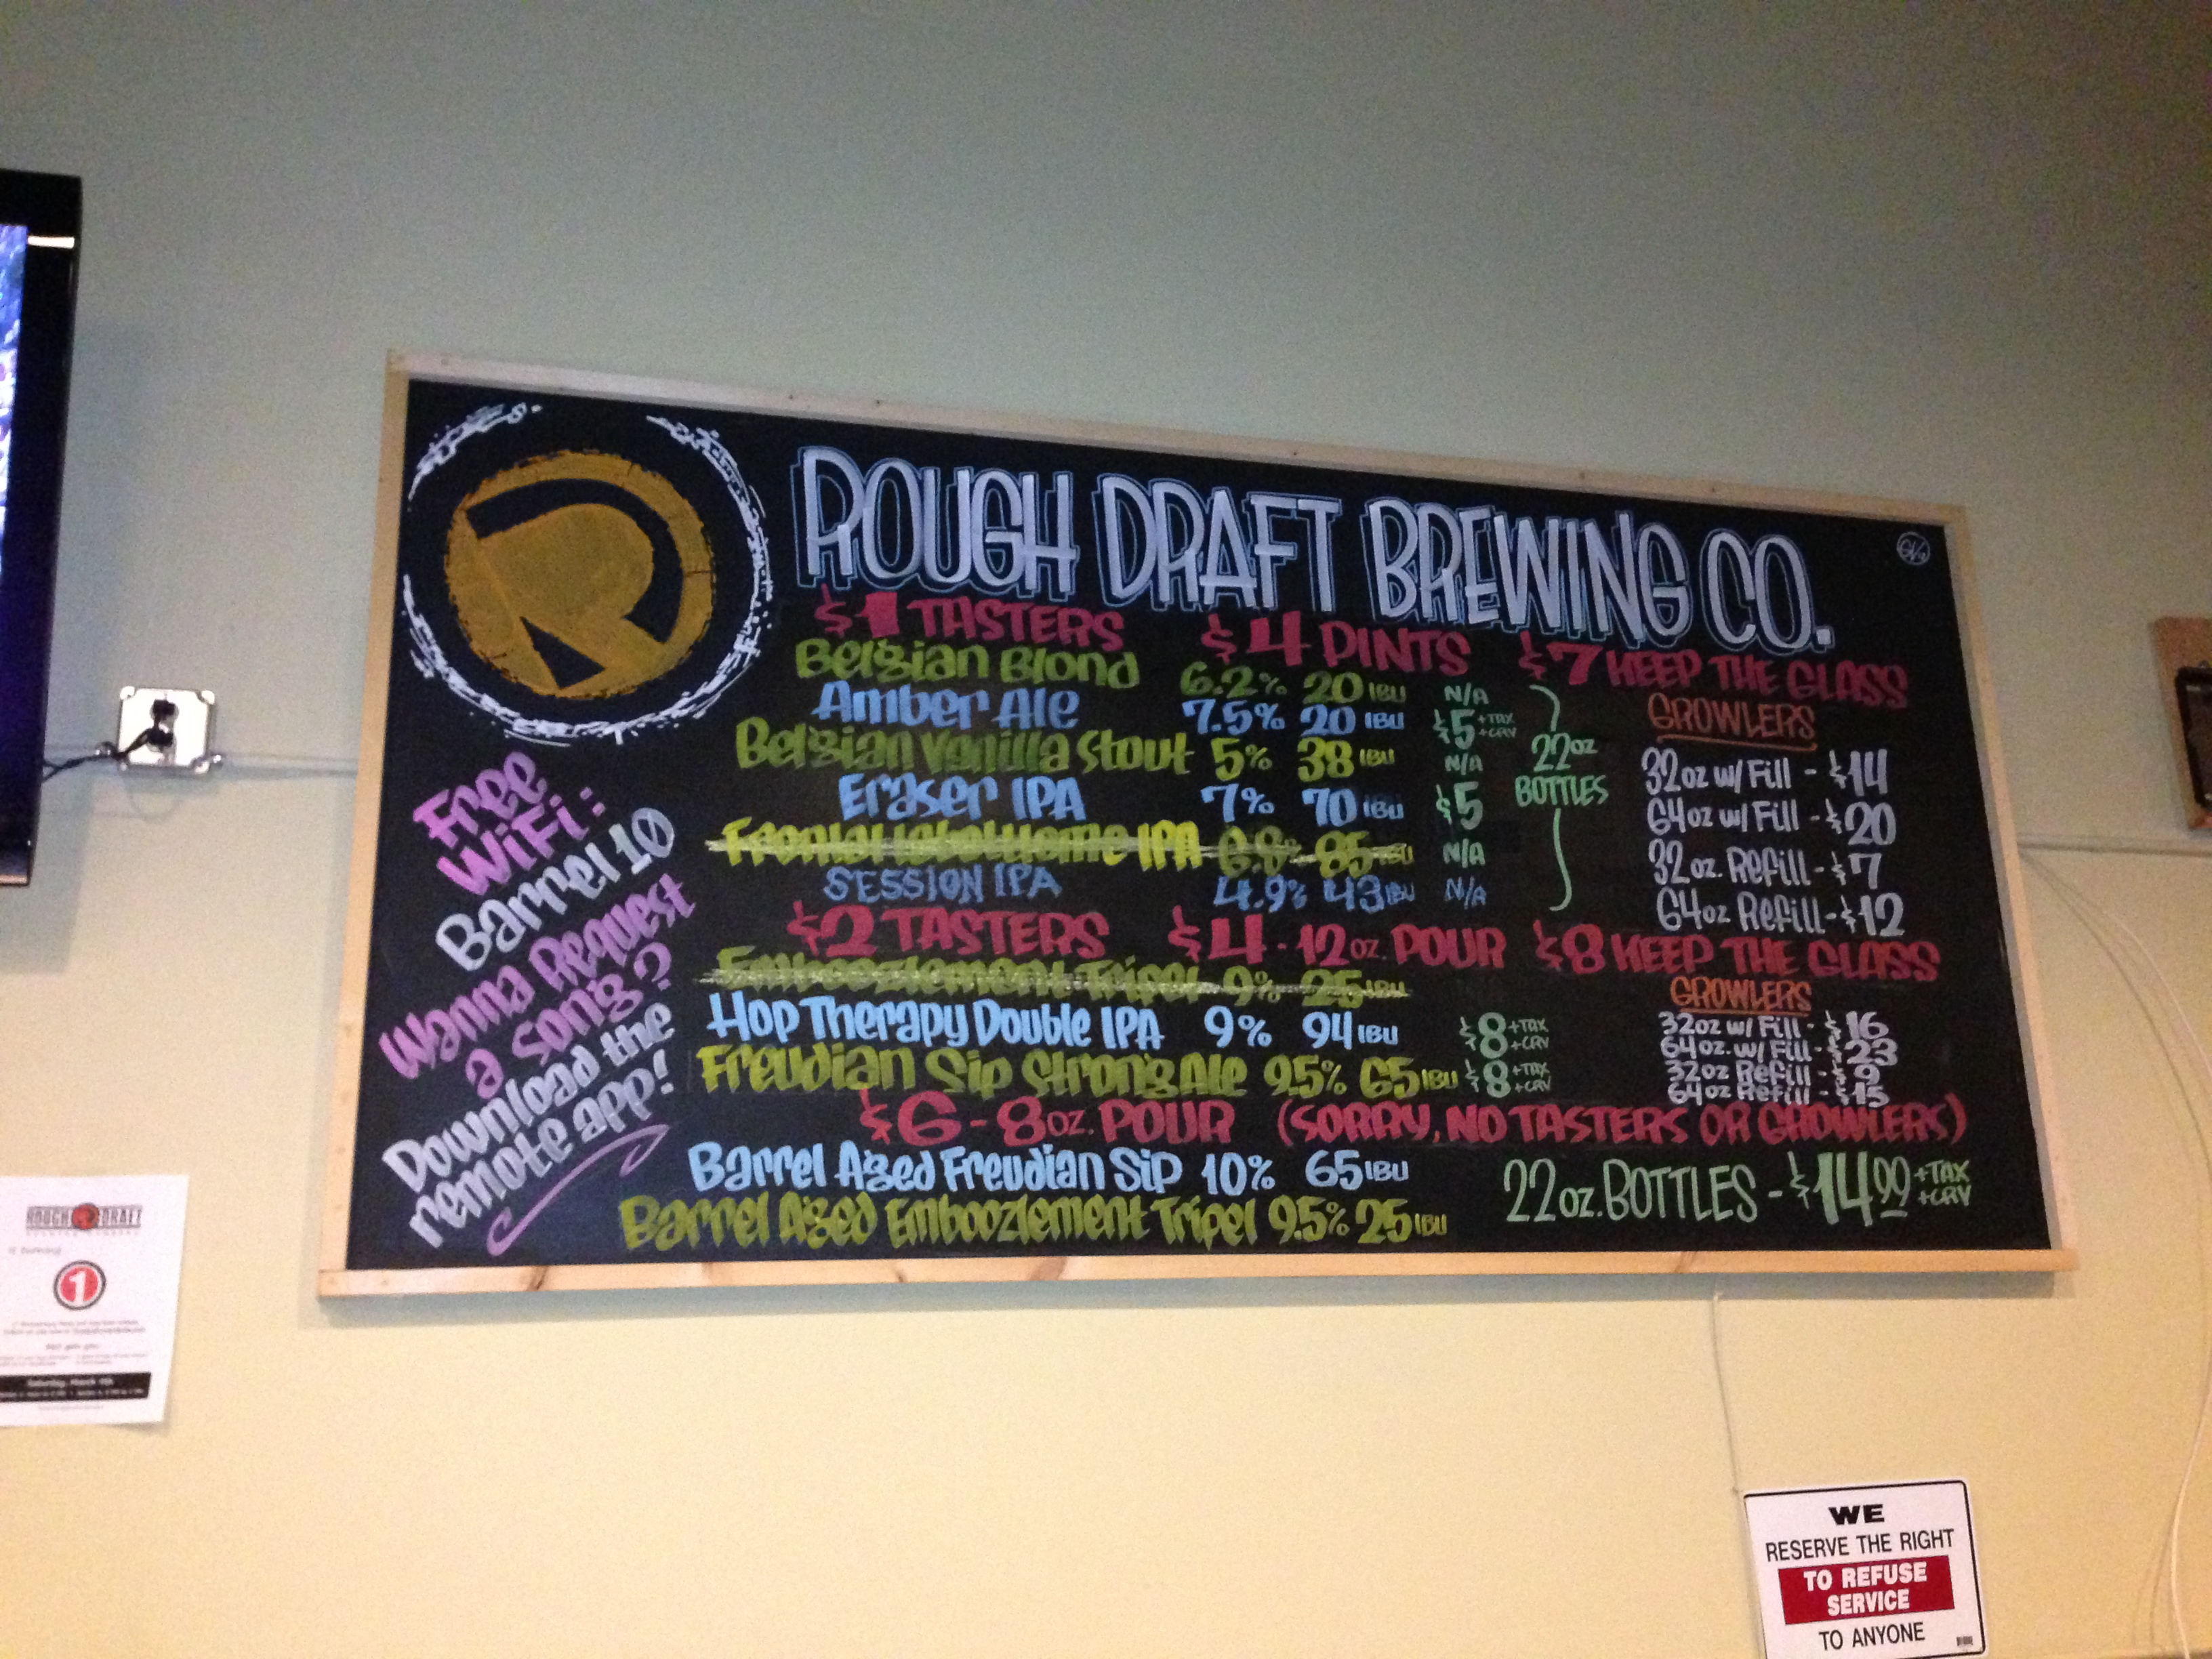 ROUGH DRAFT BREWING CO.
$1 TASTERS $4 PINTS $7 KEEP THE GLASS
Belgian Blond 6.2% 20 IBU N/A
Amber Ale 7.5% 20 IBU $5 +TAX +CRV
Belgian Vanilla Stout 5% 38 IBU N/A
Eraser IPA 7% 70 IBU $5
IPA 6.8% 85 IBU N/A
SESSION IPA 4.9% 43 IBU N/A
22oz
BOTTLES
GROWLERS
32oz w/ Fill - $14
64oz w/ Fill - $20
32oz. Refill - $7
64oz Refill - $12
$2 TASTERS $4 - 12oz. POUR $8 KEEP THE GLASS
Emboozlement Tripel 9% 25 IBU
Hop Therapy Double IPA 9% 94 IBU $8 +TAX +CRV
Freudian Sip Strong Ale 9.5% 65 IBU $8 +TAX +CRV
GROWLERS
32oz w/ Fill - $16
64oz. w/ Fill - $23
32oz Refill - $9
64oz Refill - $15
$6 - 8oz. POUR (SORRY, NO TASTERS OR GROWLERS)
Barrel Aged Freudian Sip 10% 65 IBU
Barrel Aged Emboozlement Tripel 9.5% 25 IBU
22oz. BOTTLES - $14.99 +TAX +CRV
Free
WiFi:
Barrel 10
Wanna Request
a song?
Download the
remote app!
ROUGH DRAFT
1
Saturday, March
WE
RESERVE THE RIGHT
TO REFUSE
SERVICE
TO ANYONE